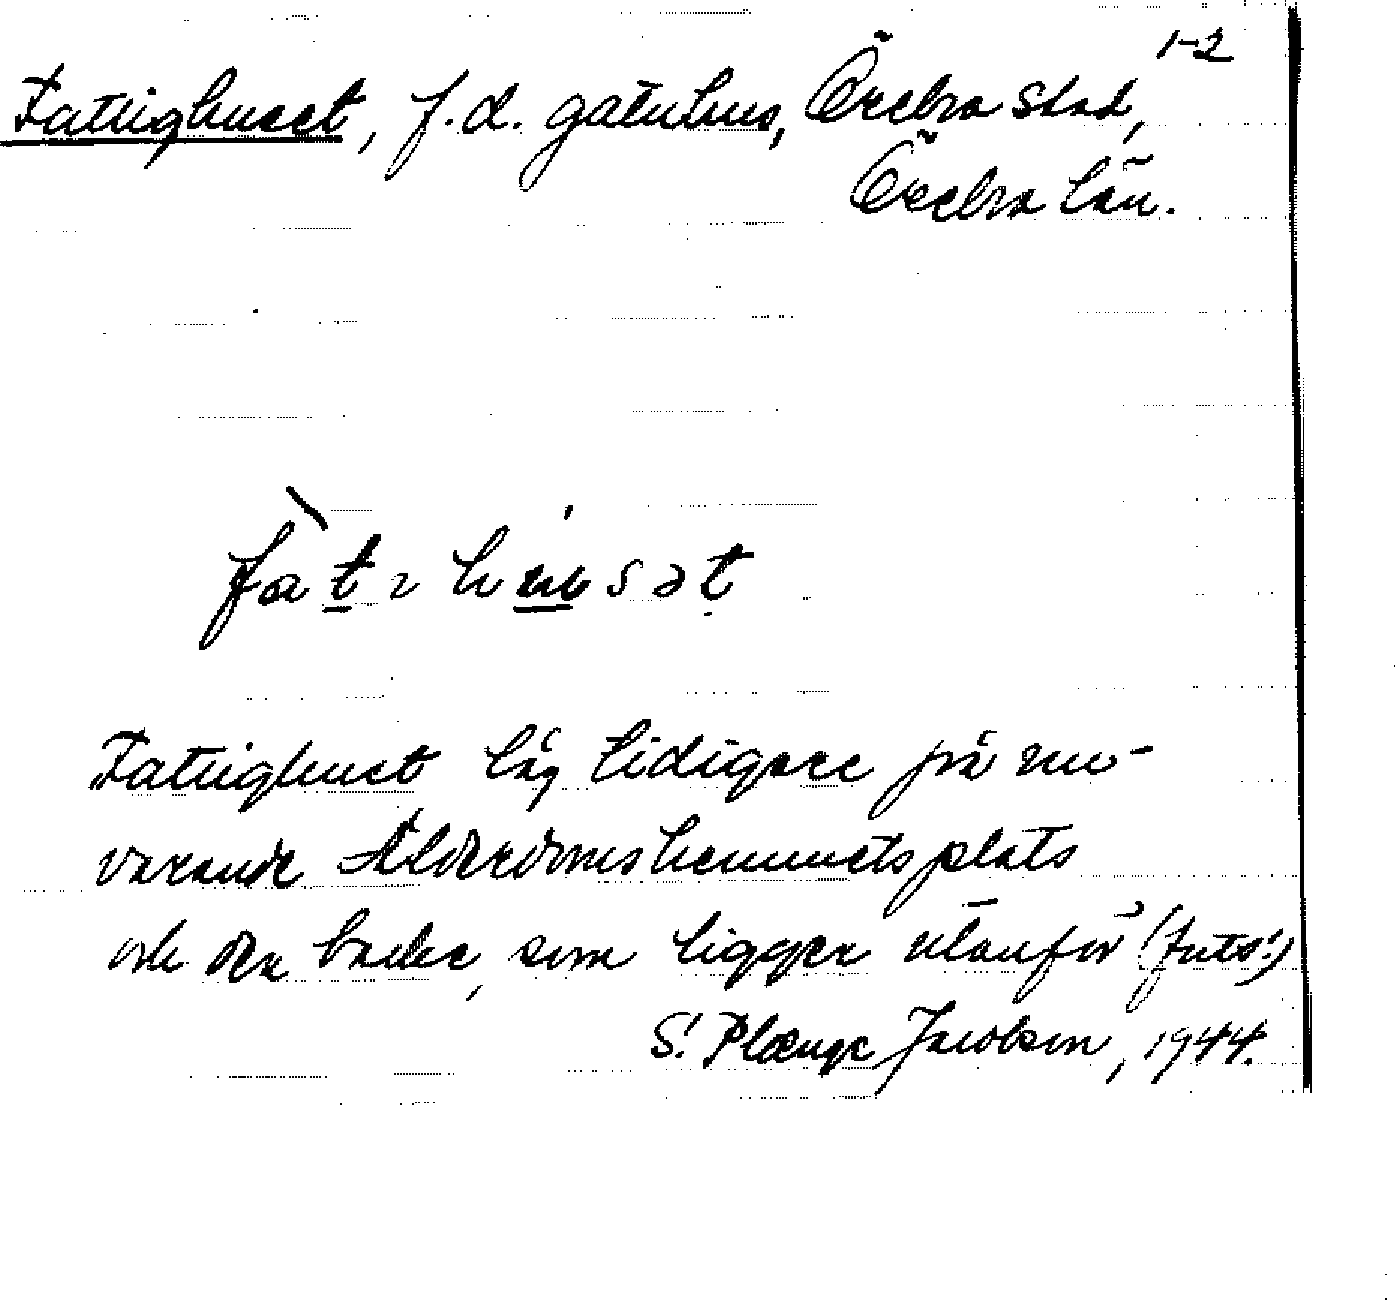 1-2
Fattighuset, f.d. gatuhus, Örebro stad,
Örebro län.
fàtɩhu̱sət
Fattighuset låg tidigare på nu-
varande Ålderdomshemmets plats
och den backe, som ligger utanför (forts.)
S. Plænge Jacobson, 1944.